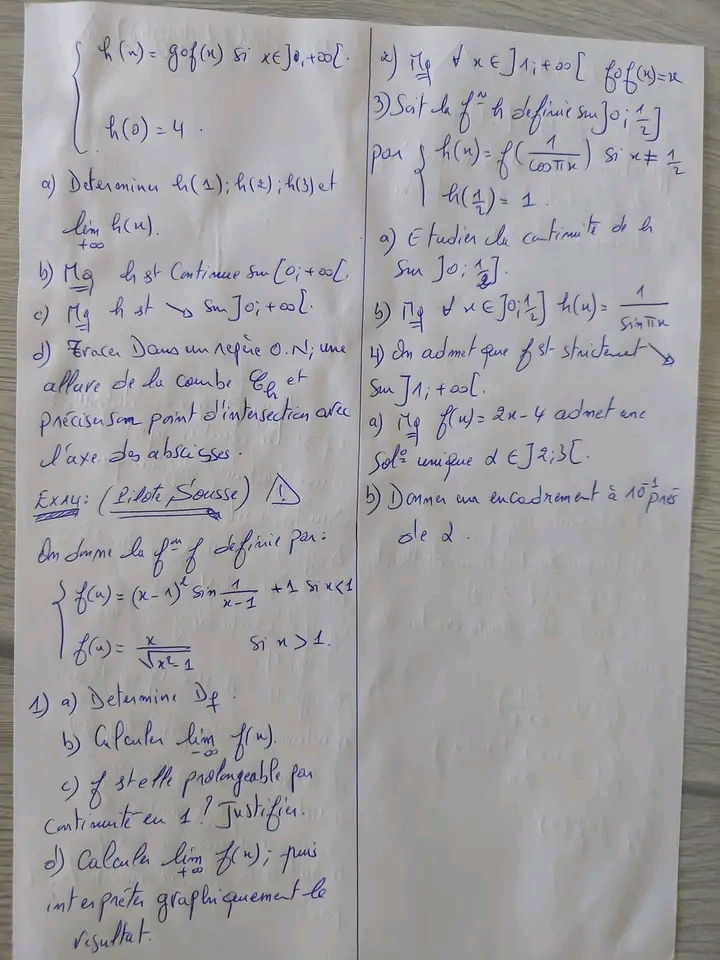 { h(x) = gof(x) si x ∈ ]0, +∞[.
h(0) = 4.
a) Determiner h(1); h(2); h(3) et
lim h(x).
+∞
b) Mq h st Continue sur [0; +∞[.
c) Mq h st ↘ sur ]0; +∞[.
d) Tracer Dans un repère O.N; une
allure de la courbe ℓh et
préciser son point d'intersection avec
l'axe des abscisses.
EX14: (Pilote Sousse) ⚠
On donne la f^n f definie par:
{ f(x) = (x-1)² sin 1/(x-1) + 1 si x<1
f(x) = x/√(x²-1) si x > 1.
1) a) Determine Df.
b) Calculer lim f(x).
-∞
c) f st elle prolongeable par
continuité en 1? Justifier.
d) Calculer lim f(x); puis
+∞
interpréter graphiquement le
résultat.
2) Mq ∀ x ∈ ]1; +∞[ fof(x) = x
3) Soit la f^n h definie sur ]0; 1/2]
par { h(x) = f(1/cosπx) si x ≠ 1/2
h(1/2) = 1.
a) Etudier la continuité de h
sur ]0; 1/2].
b) Mq ∀ x ∈ ]0; 1/2] h(x) = 1/sinπx
4) On admet que f st strictement ↘
sur ]1; +∞[.
a) Mq f(x) = 2x-4 admet une
Sol° unique α ∈ ]2; 3[.
b) Donner un encadrement à 10⁻¹ près
de α.